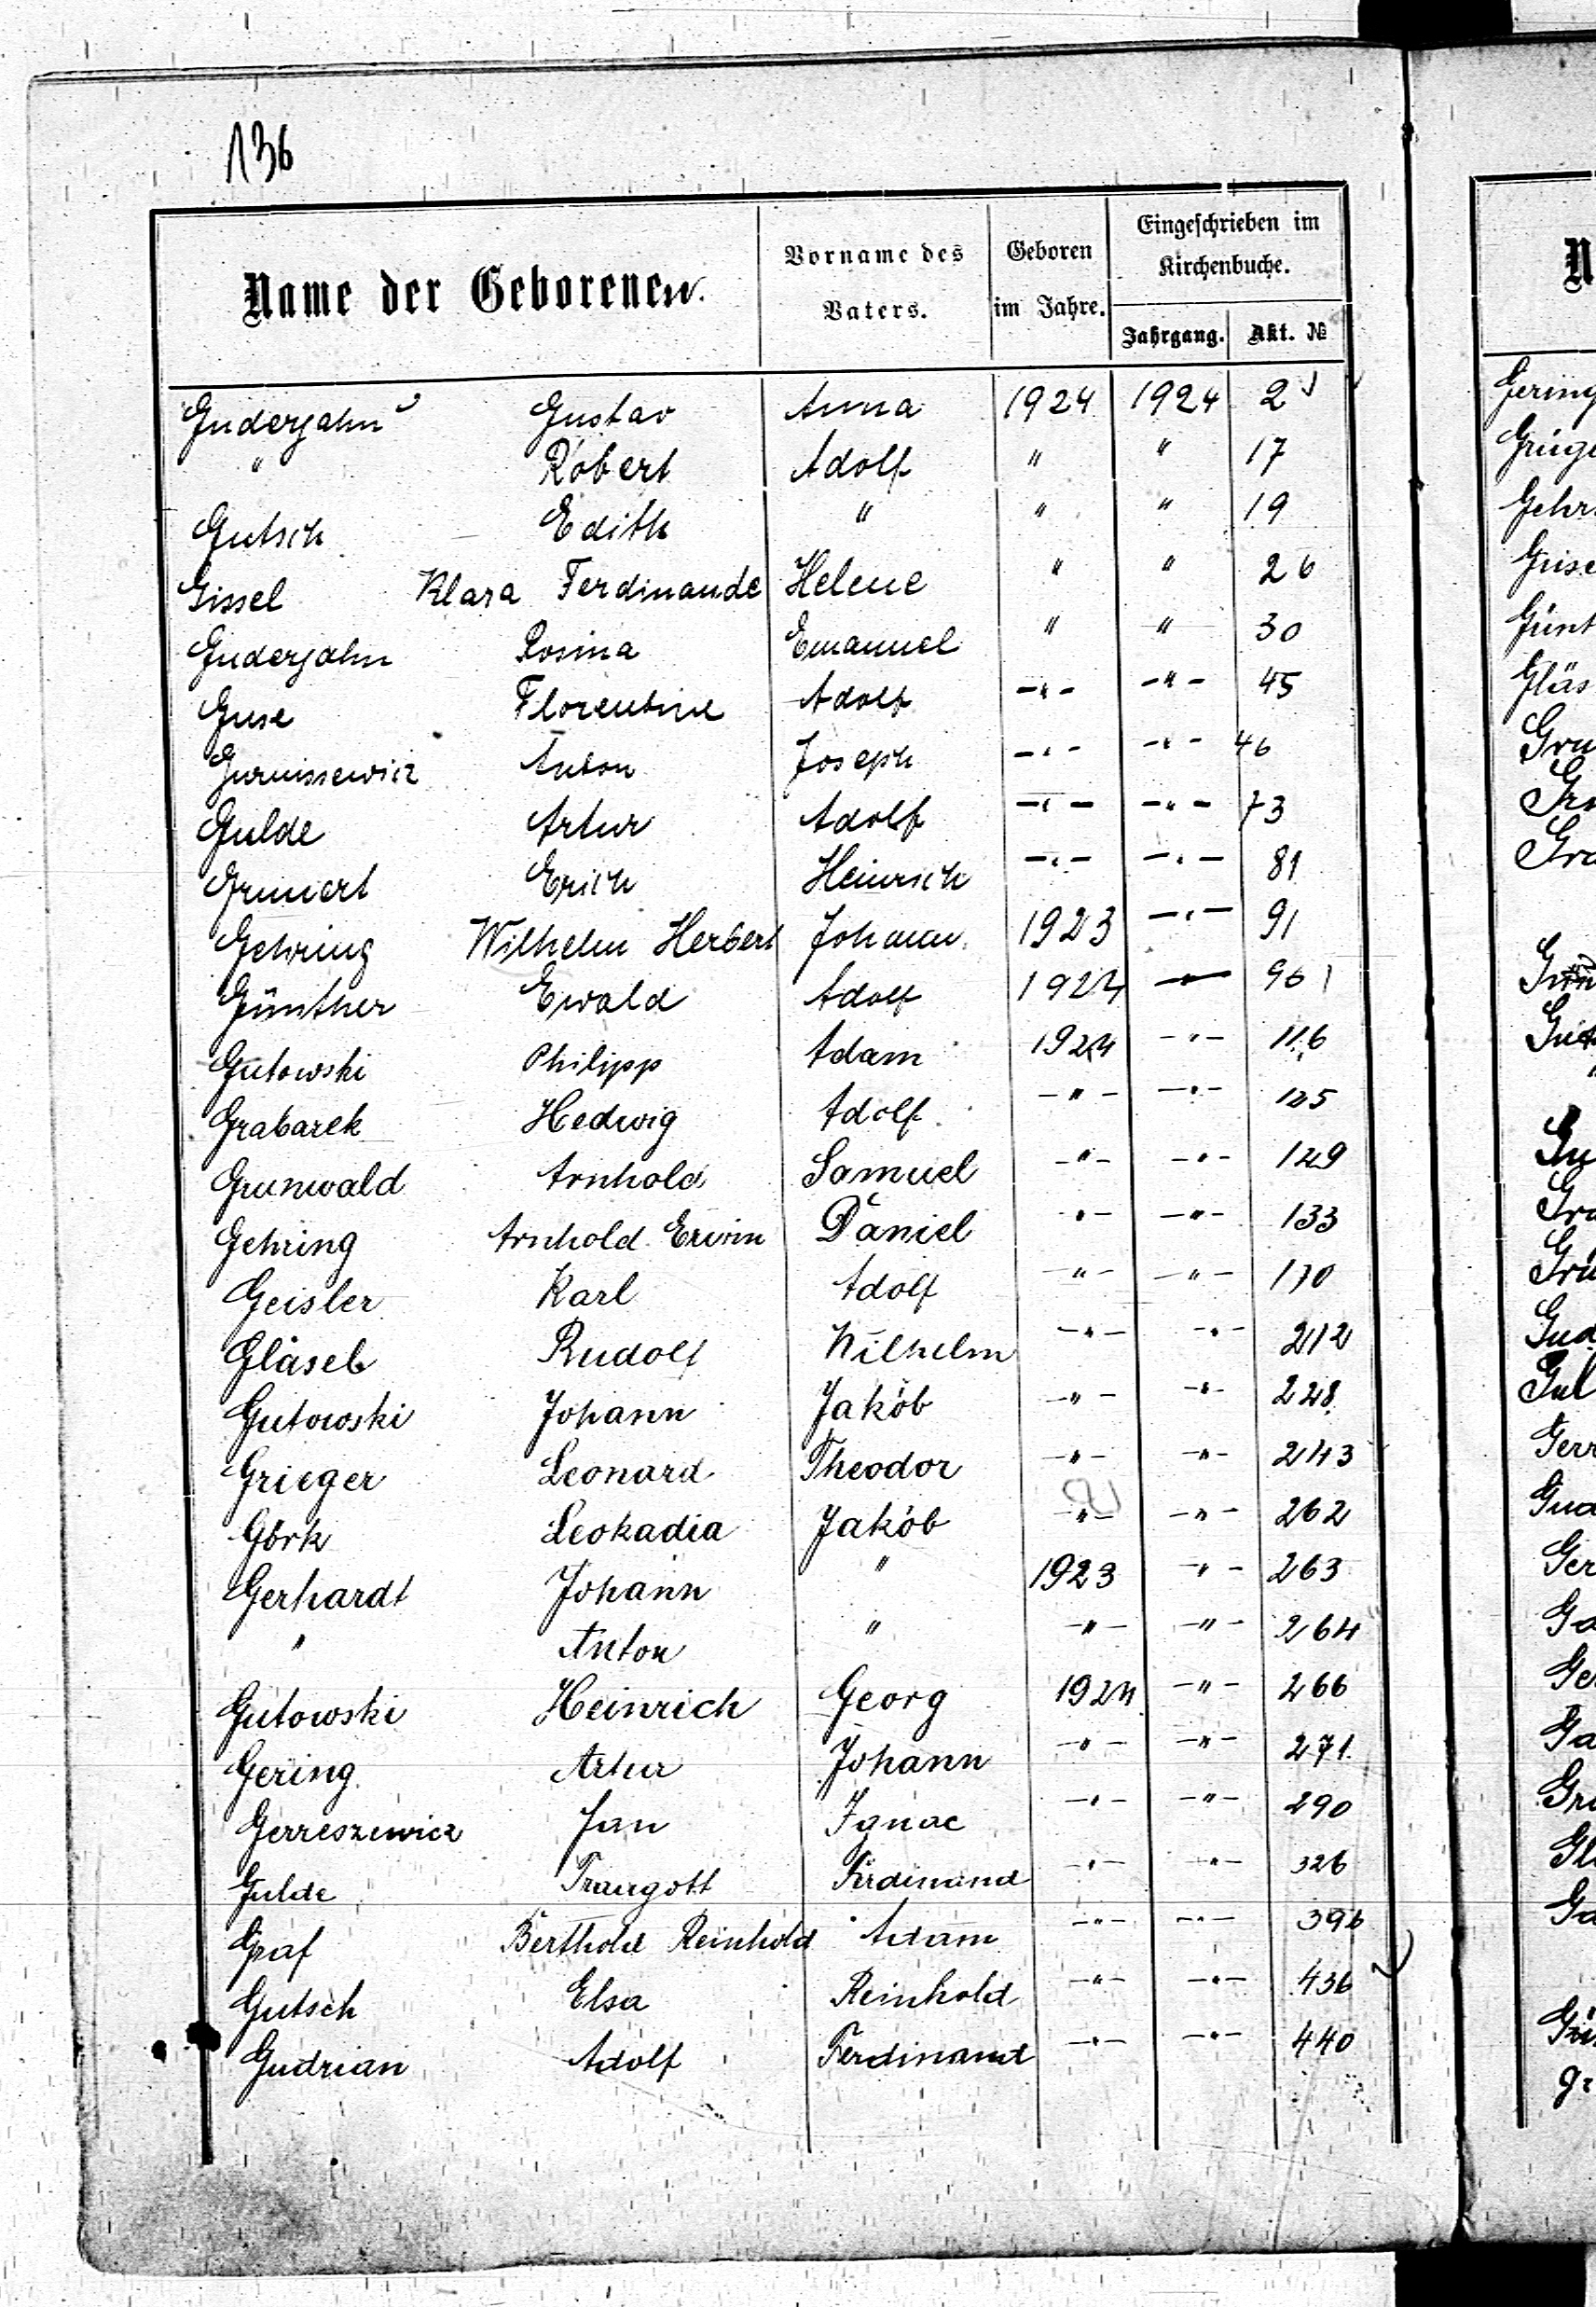 136
Name der Geborenen. Vorname des Vaters. Geboren im Jahre. Eingeschrieben im Kirchenbuche.
Jahrgang. Akt. №
Guderjahn Gustav Anna 1924 1924 2
" Robert Adolf " " 17
Gutsch Edith " " " 19
Gissel Klara Ferdinande Helene " " 26
Guderjahn Rosina Emanuel " " 30
Guse Florentine Adolf -"- -"- 45
Anton Joseph -"- -"- 46
Gulde Artur Adolf -"- -"- 73
Grunert Erich Heinrich -"- -"- 81
Gehring Wilhelm Herbert Johann 1923 -"- 91
Günther Ewald Adolf 1924 -"- 96
Gutowski Philipp Adam 1924 -"- 116
Grabarek Hedwig Adolf -"- -"- 125
Grunwald Arnhold Samuel -"- -"- 129
Gehring Arnhold Erwin Daniel -"- -"- 133
Geisler Karl Adolf -"- -"- 170
Gläsel Rudolf Wilhelm -"- -"- 212
Gutowski Johann Jakob -"- -"- 228
Grieger Leonard Theodor -"- -"- 243
Görk Leokadia Jakob -"- -"- 262
Gerhardt Johann " 1923 -"- 263
" Anton " -"- -"- 264
Gutowski Heinrich Georg 1924 -"- 266
Gering Artur Johann -"- -"- 271
Gerreszewicz Jan Ignac -"- -"- 290
Gulde Traugott Ferdinand -"- -"- 326
Graf Berthold Reinhold Adam -"- -"- 396
Gutsch Elsa Reinhold -"- -"- 436
Gudrian Adolf Ferdinand -"- -"- 440